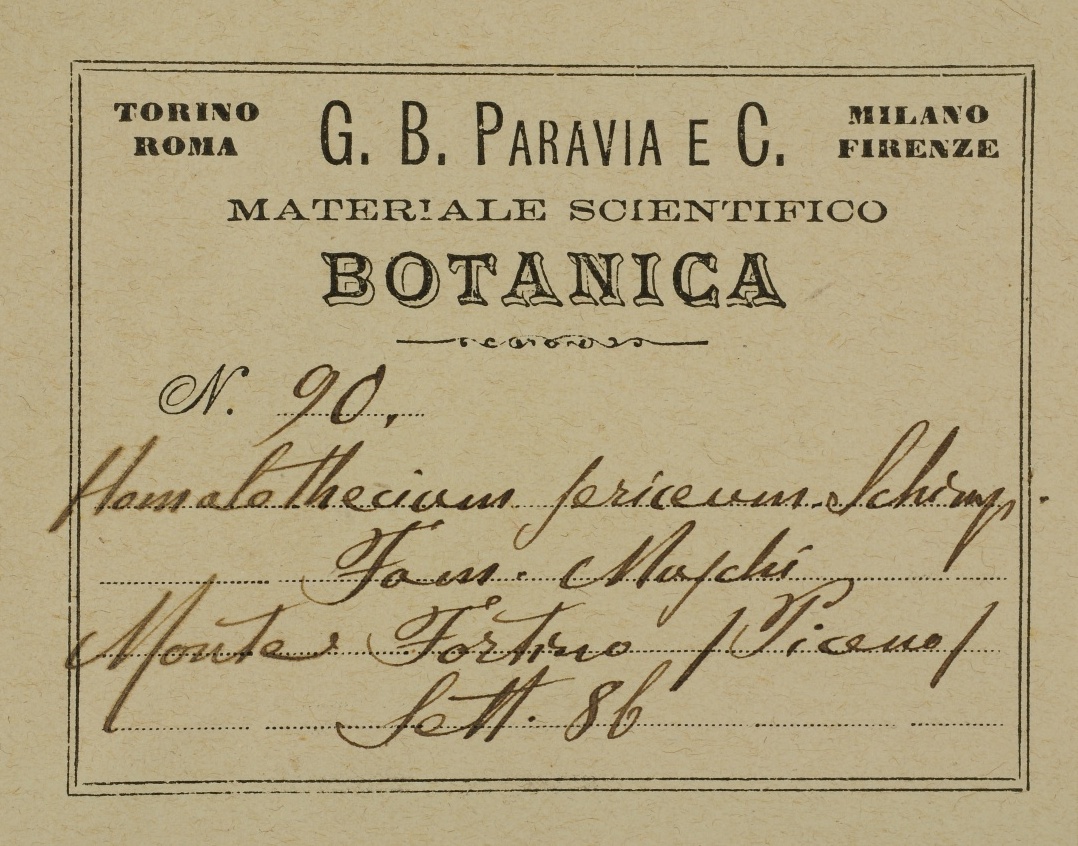 TORINO ROMA G. B. PARAVIA E C. MILANO FIRENZE
MATERIALE SCIENTIFICO
BOTANICA
N. 90.
Homalothecium sericeum. Schimp.
Fam. Muschi
Monte Fortino (Piceno)
Sett. 86